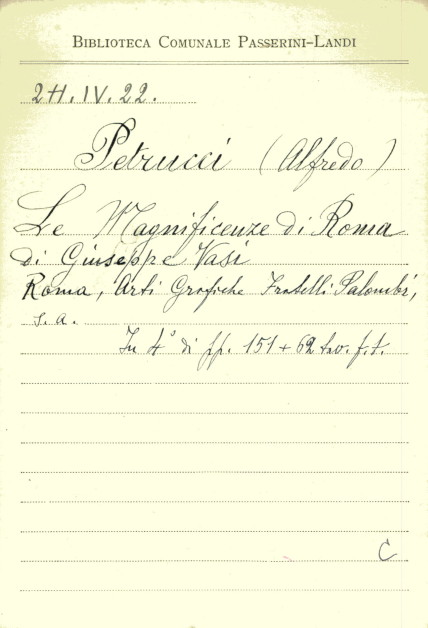 BIBLIOTECA COMUNALE PASSERINI-LANDI
2H.IV.22.
Petrucci (Alfredo)
Le Magnificenze di Roma
di Giuseppe Vasi
Roma, Arti Grafiche Fratelli Palombi,
s.a.
In 4° di pp. 151 + 62 tav. f.t.
C